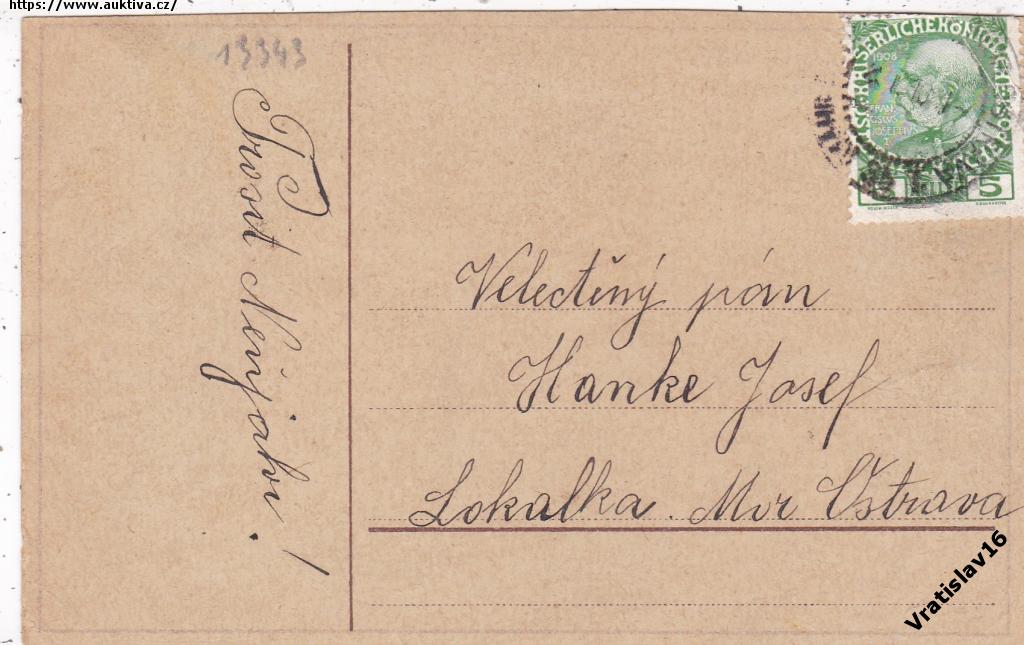 https://www.auktiva.cz/
13343
Prosit Neujahr!
KAISERLICHE KÖNIGLICHE ÖSTERREICHISCHE
1908
FRAN
CISCVS
JOSEPHVS
5
Velectěný pán
Hanke Josef
Lokalka. Mor Ostrava
Vratislav16